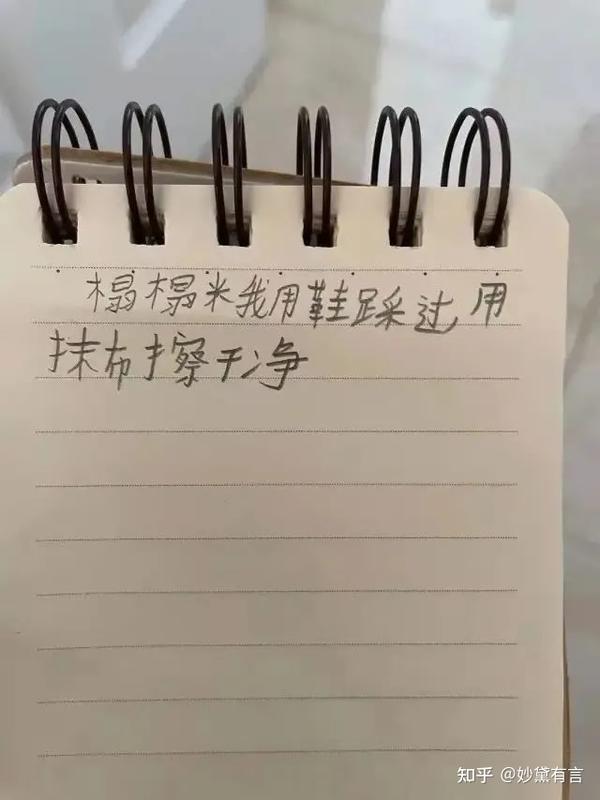 榻榻米我用鞋踩过,用
抹布擦干净
知乎 @妙黛有言